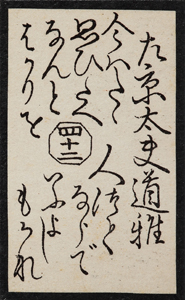 左京太夫道雅
今はたゝ
思ひたえ
なんと
はかりを
四十二
人つて
ならで
いふよし
もかな